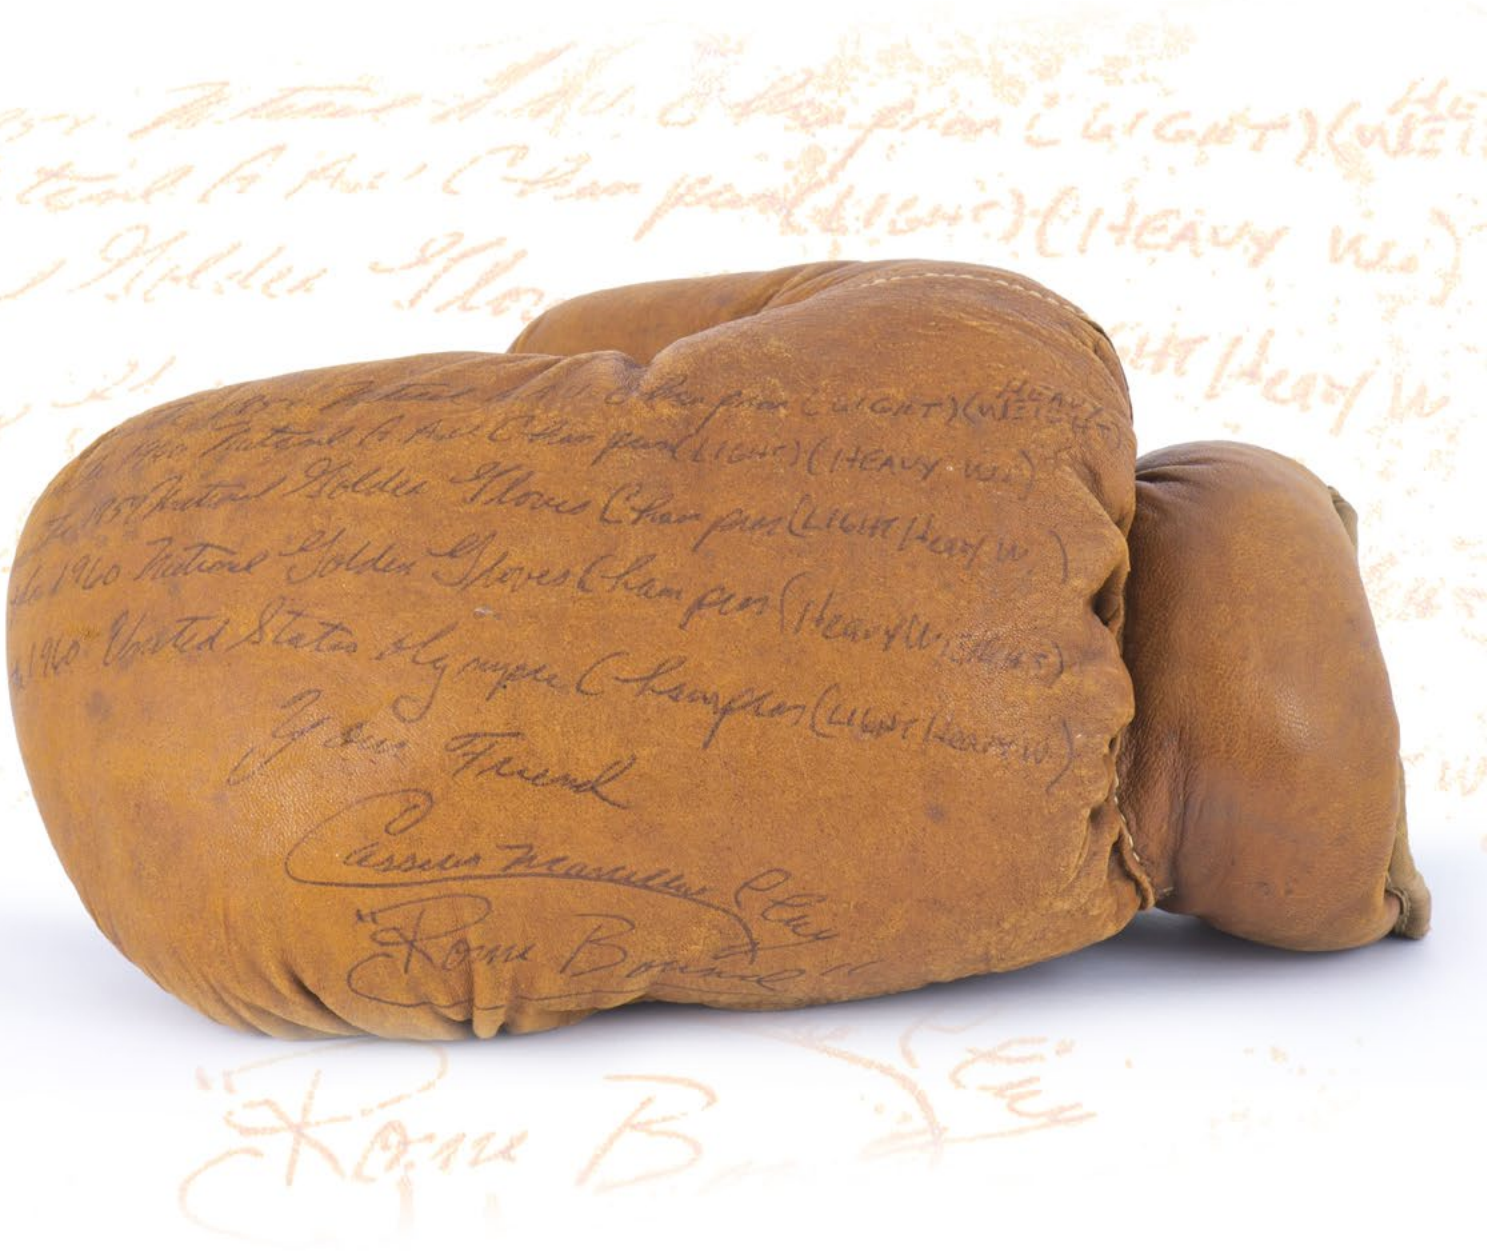 National A.A.U. Champion (LIGHT) (HEAVY WEIGHT)
1960 National A.A.U. Champion (LIGHT) (HEAVY WEI)
the 1959 National Golden Gloves Champion (LIGHT/Heavy W.)
the 1960 National Golden Gloves Champion (Heavy W
1960 United States olympic Champion (LIGHT/Heavy W.)
Your Friend
Cassius Marcellus Clay
"Rome Bound"